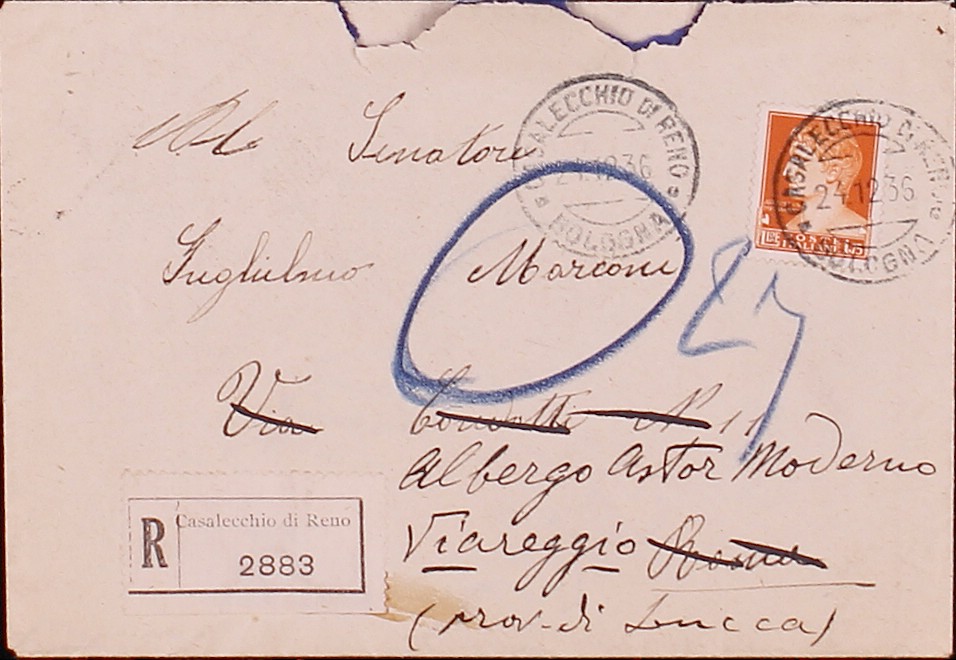 Al Senatore
CASALECCHIO DI RENO
24.12.36
BOLOGNA
CASALECCHIO DI RENO
24.12.36
BOLOGNA
Guglielmo Marconi
Via Condotti N 11
Albergo Astor Moderno
Viareggio Roma
(prov. di Lucca)
R
Casalecchio di Reno
2883